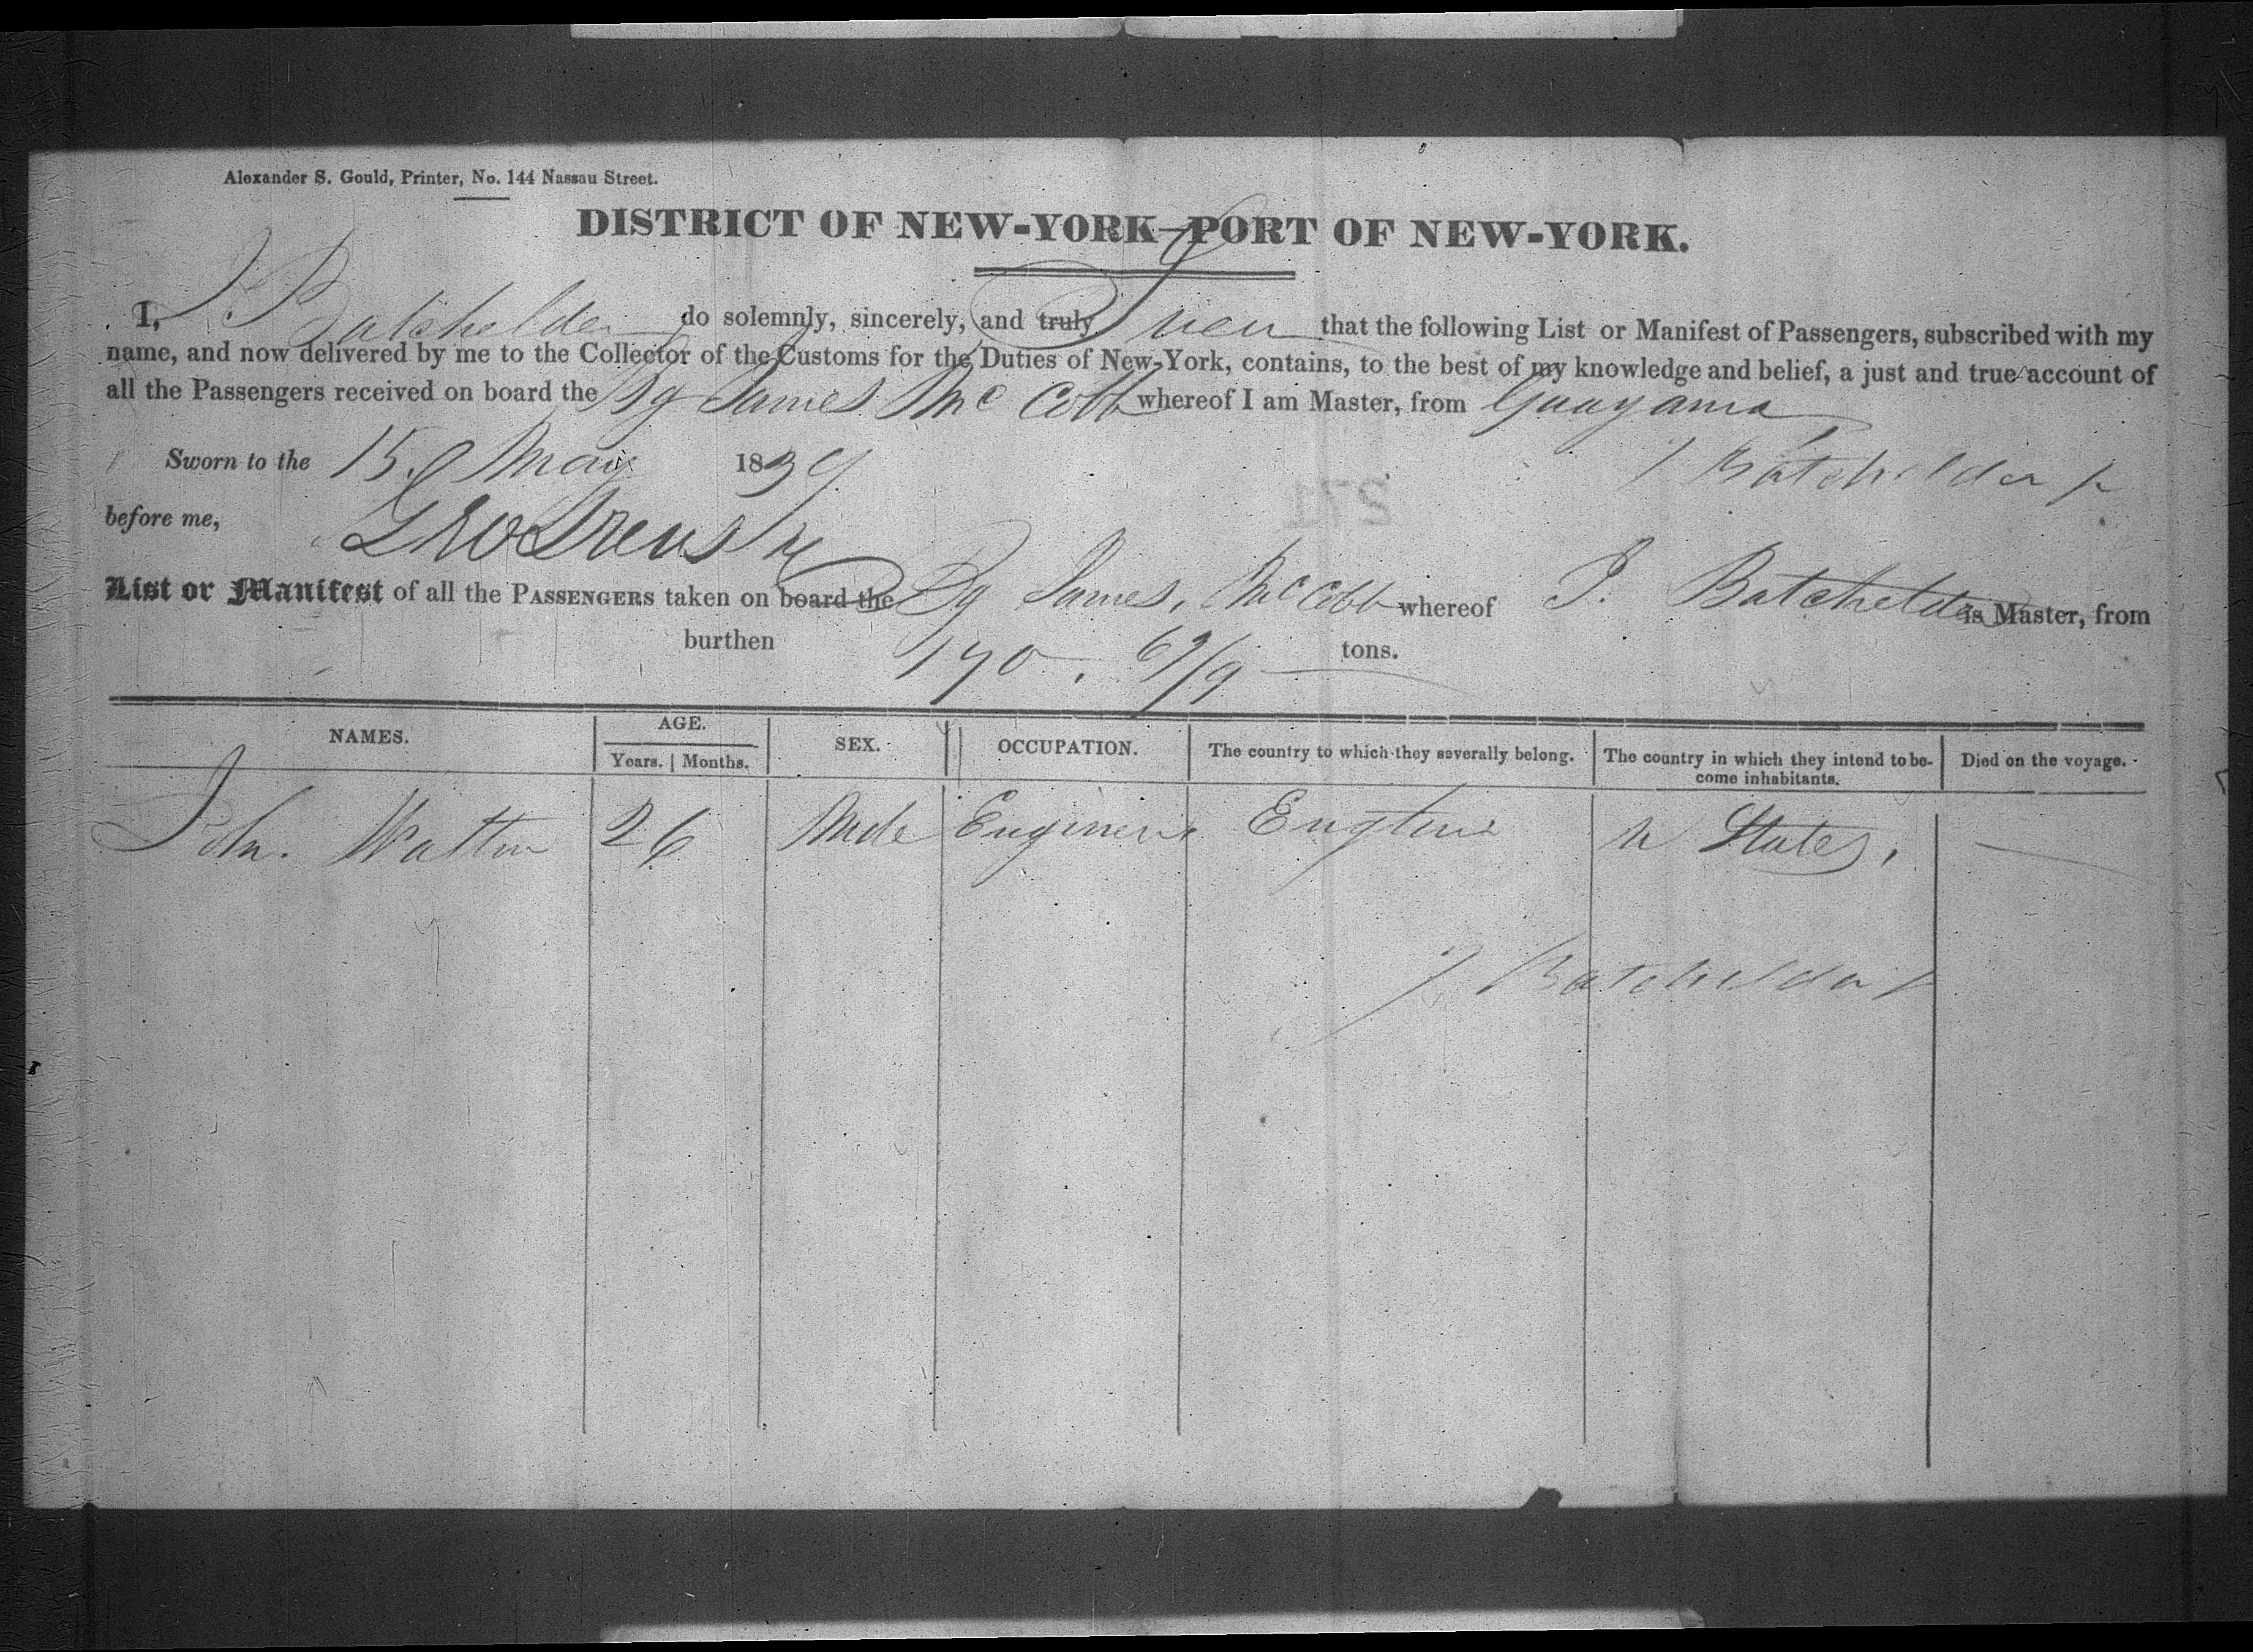 Alexander S. Gould, Printer, No. 144 Nassau Street.
DISTRICT OF NEW-YORK—PORT OF NEW-YORK.
I, J Batchelder do solemnly, sincerely, and truly Swear that the following List or Manifest of Passengers, subscribed with my
name, and now delivered by me to the Collector of the Customs for the Duties of New-York, contains, to the best of my knowledge and belief, a just and true account of
all the Passengers received on board the Bg James McCobb whereof I am Master, from Guayama
Sworn to the 15 May 1839 J Batchelder Jr
before me,
271
List or Manifest of all the PASSENGERS taken on board the Bg James McCobb whereof J. Batchelder is Master, from
burthen 190. tons.
NAMES. AGE. SEX. OCCUPATION. The country to which they severally belong. The country in which they intend to be- Died on the voyage.
Years. Months. come inhabitants.
John Watton 26 Male Engineer U States,
J Batchelder Jr